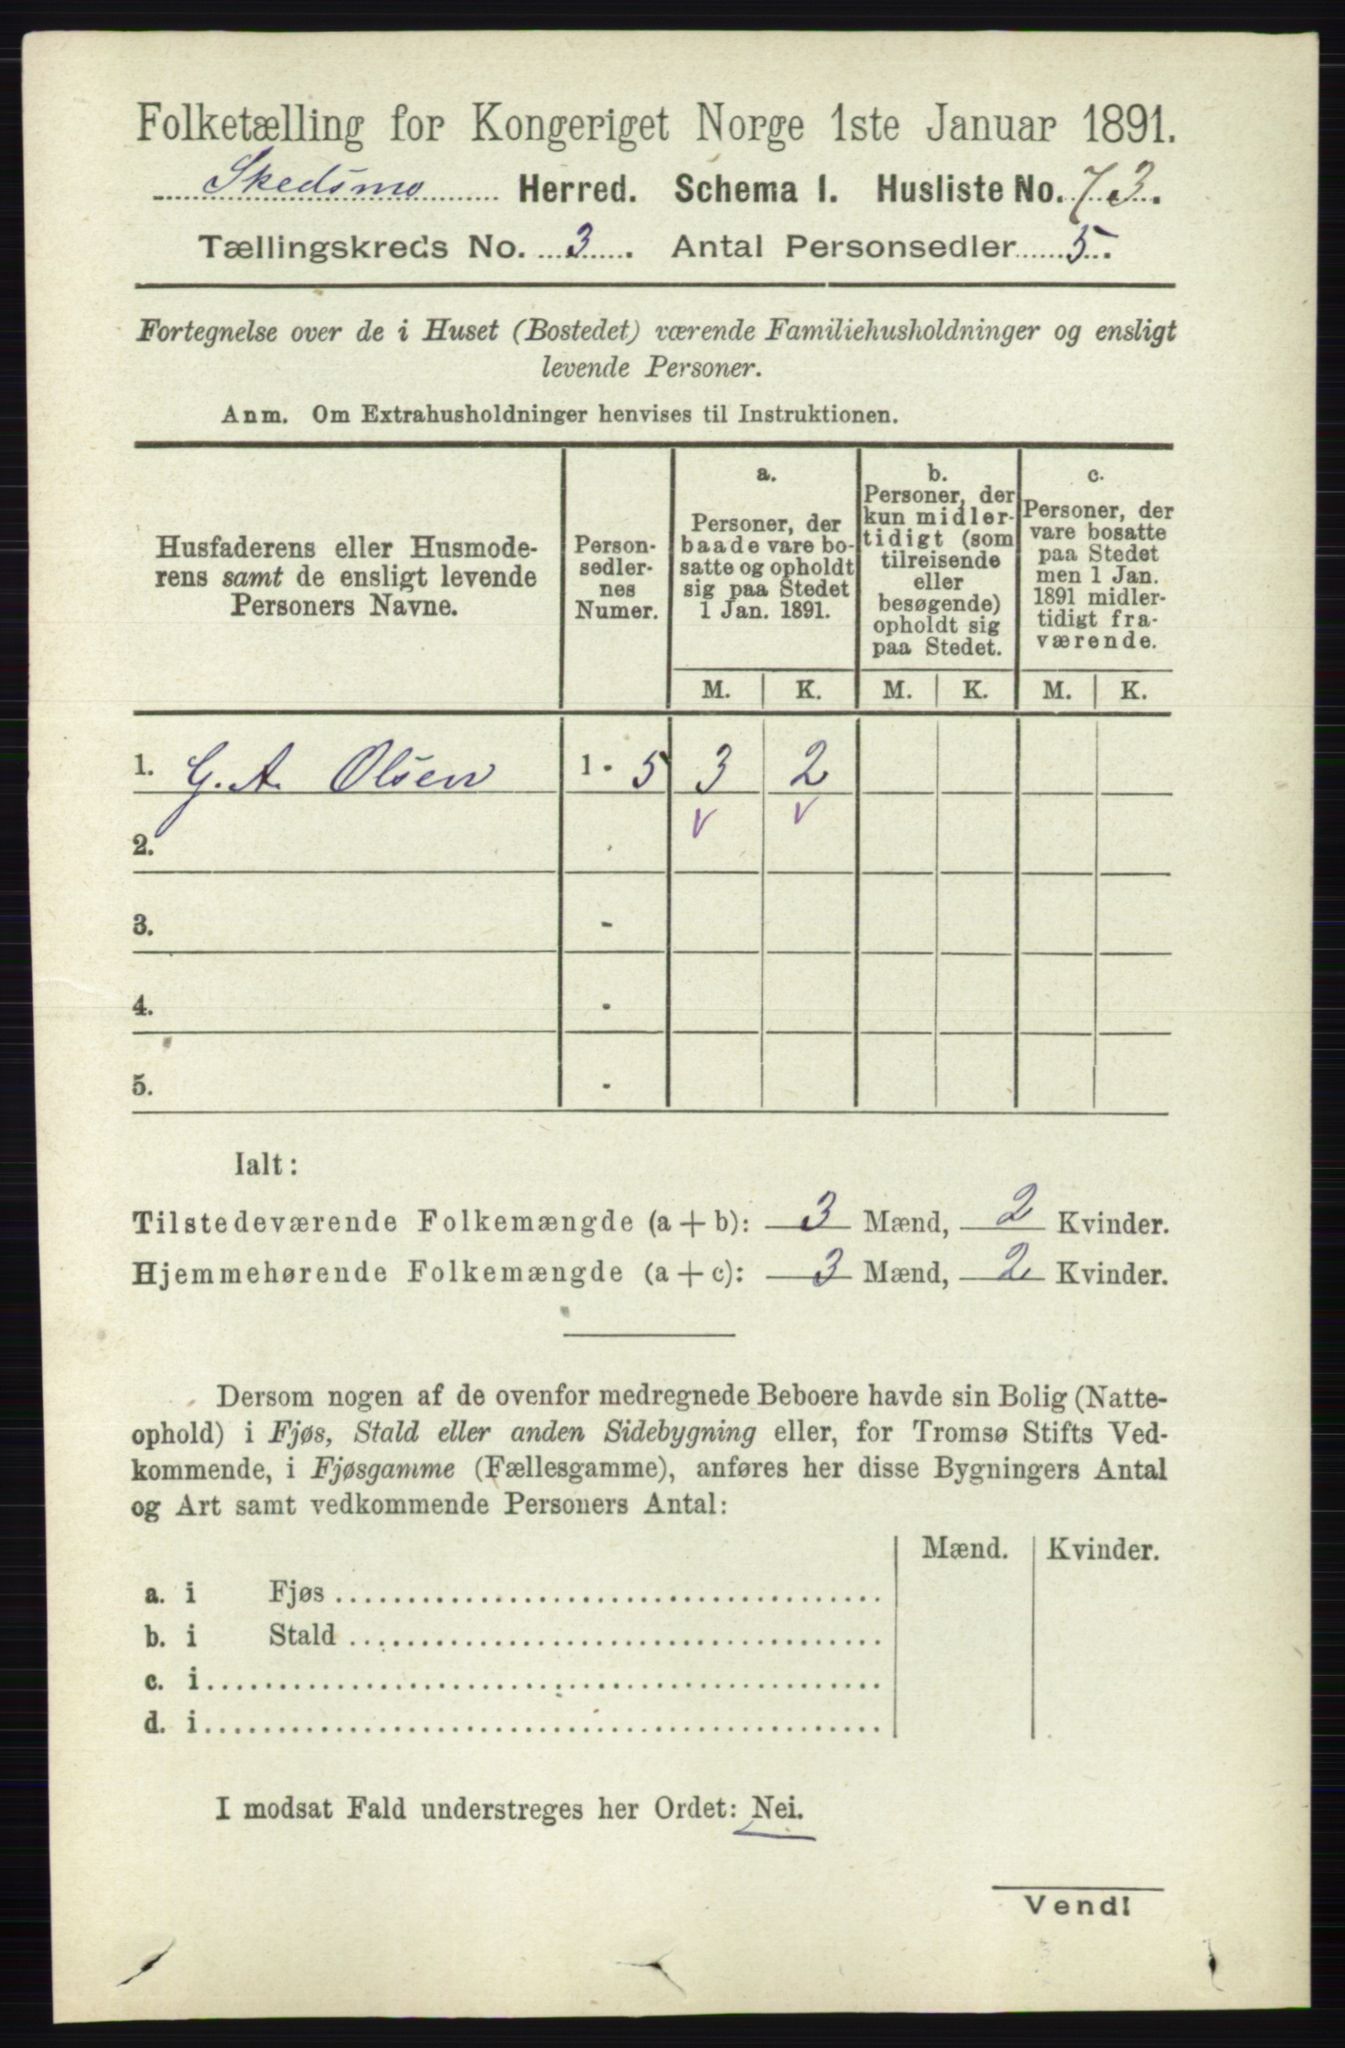 Folketælling for Kongeriget Norge 1ste Januar 1891.
Skedsmo Herred. Schema 1. Husliste No. 73.
Tællingskreds No. 3. Antal Personsedler 5.
Fortegnelse over de i Huset (Bostedet) værende Familiehusholdninger og ensligt
levende Personer.
Anm. Om Extrahusholdninger henvises til Instruktionen.
Husfaderens eller Husmode-
rens samt de ensligt levende
Personers Navne.
Person-
sedler-
nes
Numer.
a.
Personer, der
baade vare bo-
satte og opholdt
sig paa Stedet
1 Jan. 1891.
b.
Personer, der
kun midler-
tidigt (som
tilreisende
eller
besøgende)
opholdt sig
paa Stedet.
c.
Personer, der
vare bosatte
paa Stedet
men 1 Jan.
1891 midler-
tidigt fra-
værende.
M. K. M. K. M. K.
1. G. A. Olsen 1 - 5 3 2
v v
2.
3. -
4. -
5. -
Ialt:
Tilstedeværende Folkemængde (a + b): 3 Mænd, 2 Kvinder.
Hjemmehørende Folkemængde (a + c): 3 Mænd, 2 Kvinder.
Dersom nogen af de ovenfor medregnede Beboere havde sin Bolig (Natte-
ophold) i Fjøs, Stald eller anden Sidebygning eller, for Tromsø Stifts Ved-
kommende, i Fjøsgamme (Fællesgamme), anføres her disse Bygningers Antal
og Art samt vedkommende Personers Antal:
Mænd. Kvinder.
a. i Fjøs
b. i Stald
c. i
d. i
I modsat Fald understreges her Ordet: Nei.
Vend!